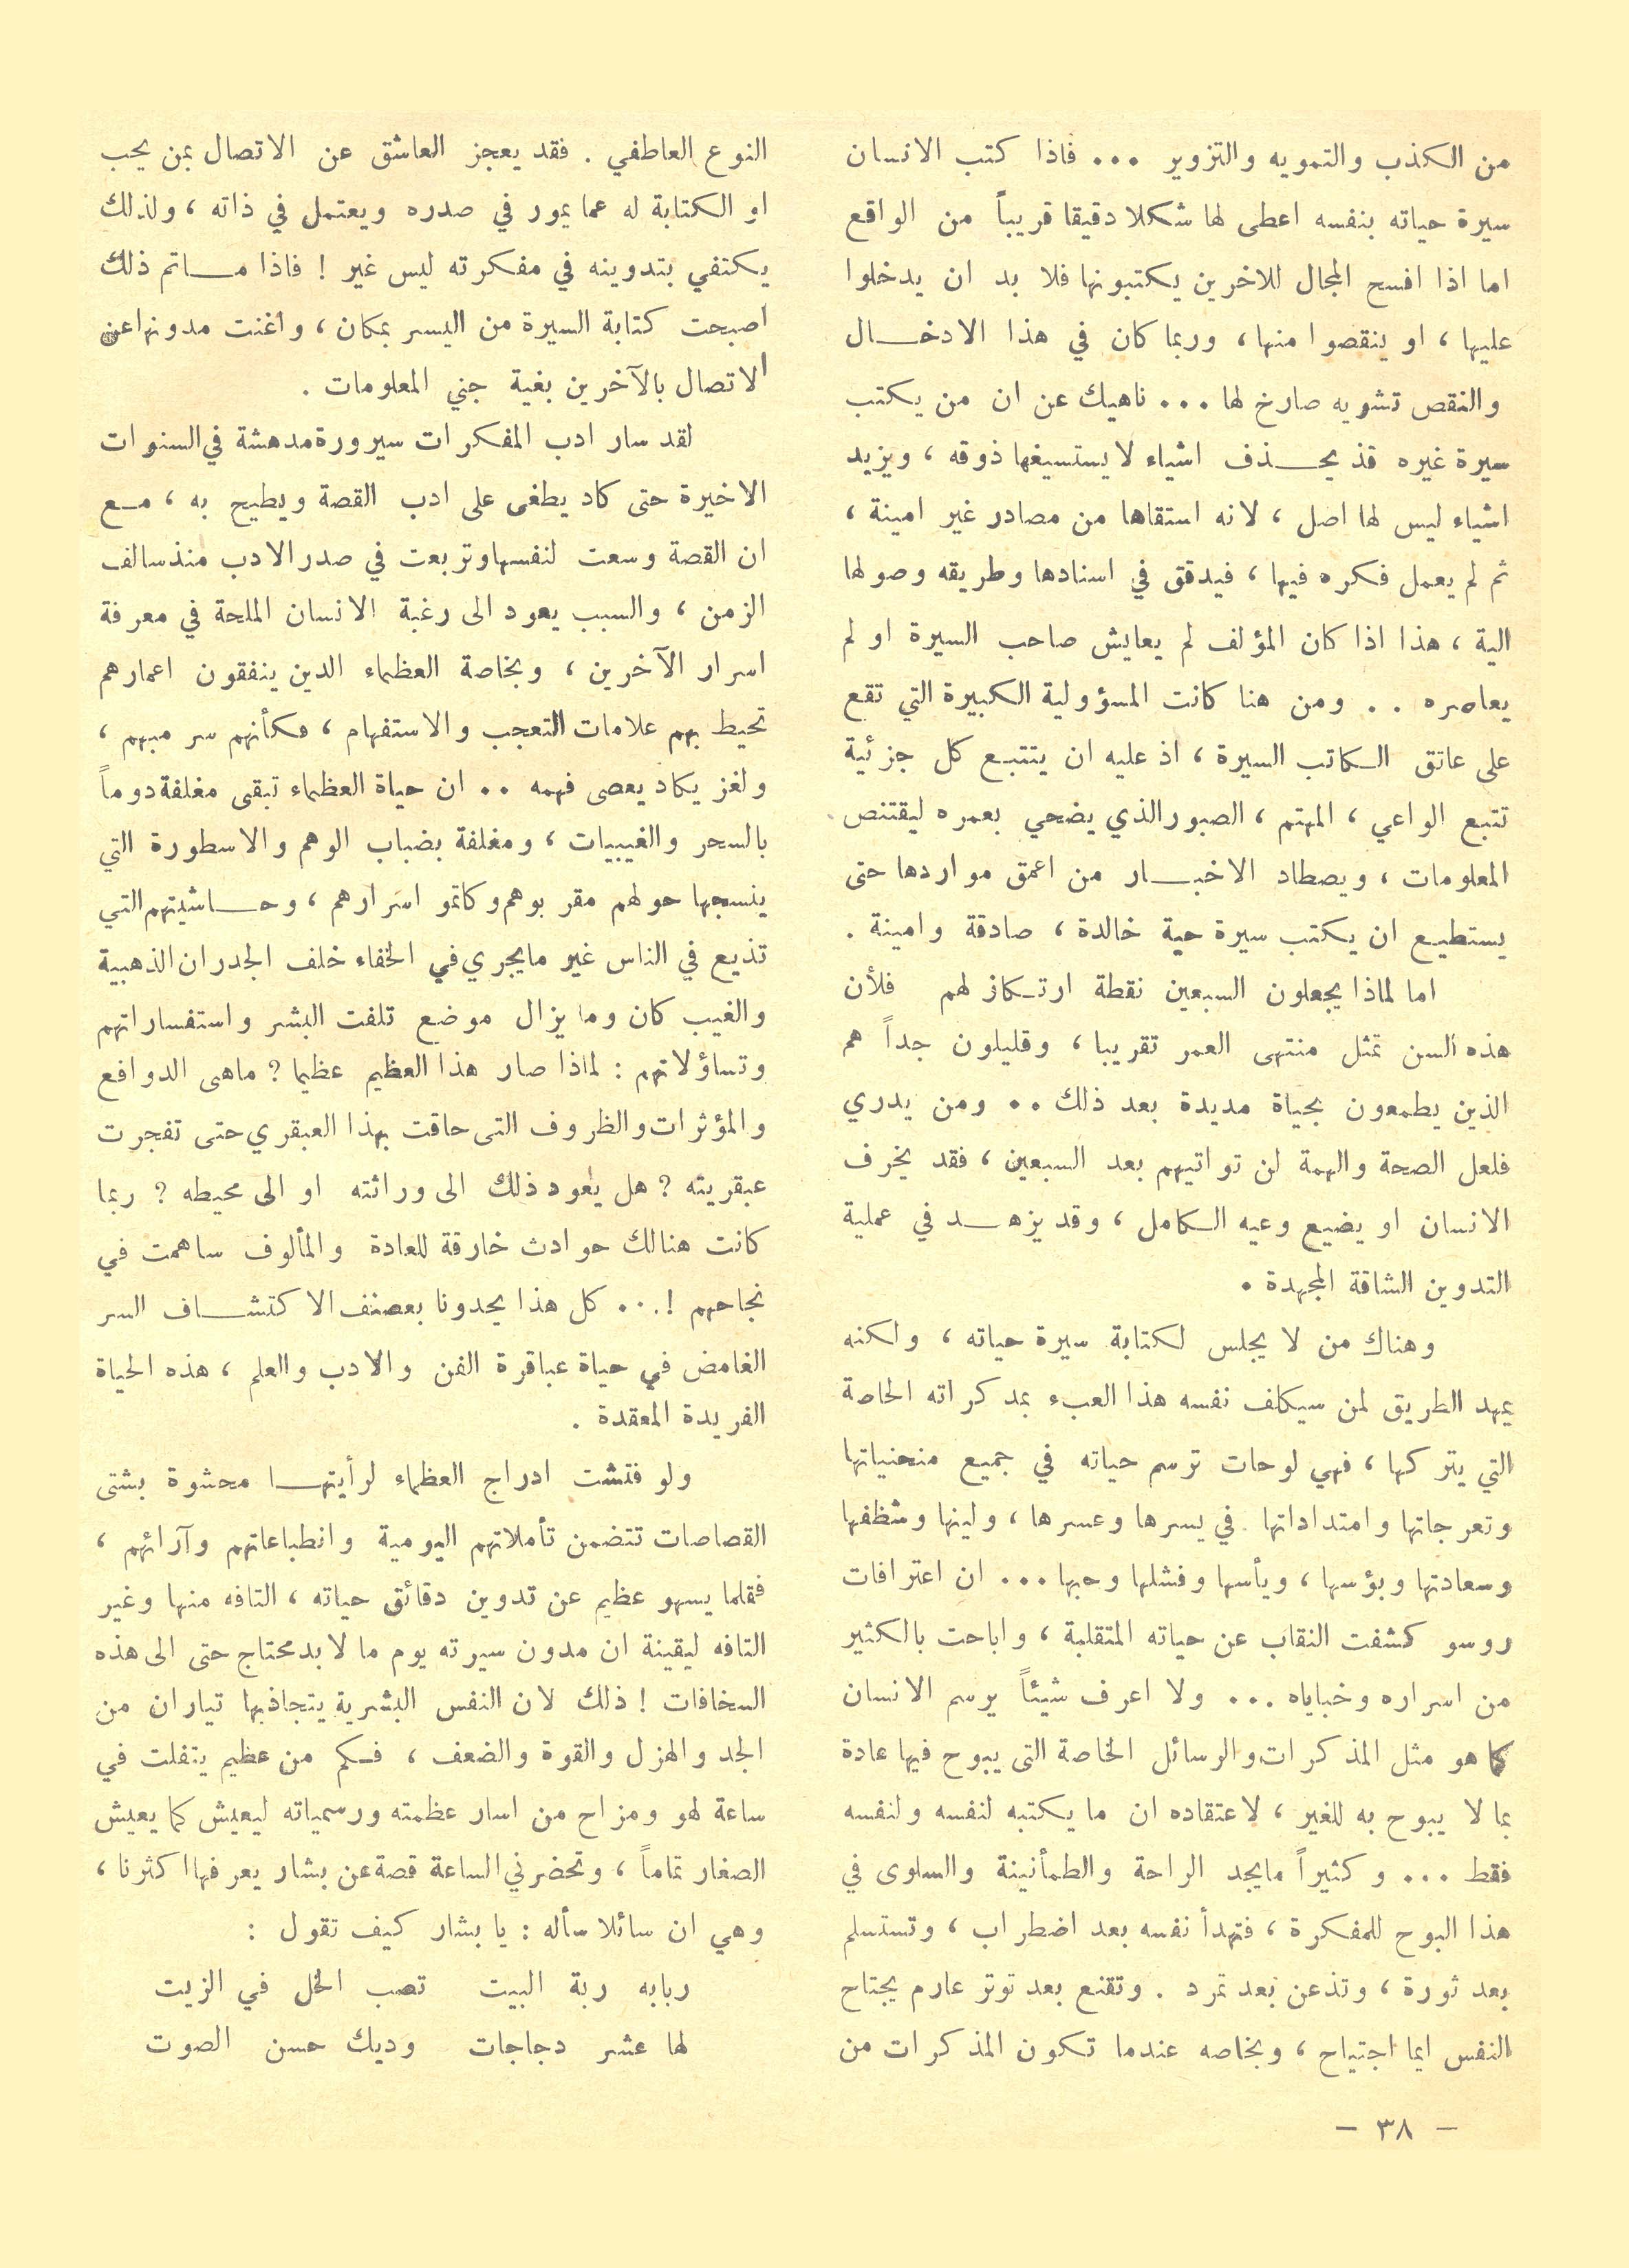 من الكذب والتمويه والتزوير ... فاذا كتب الانسان
سيرة حياته بنفسه اعطى لها شكلا دقيقا قريباً من الواقع
اما اذا افسح المجال للاخرين يكتبونها فلا بد ان يدخلوا
عليها ، او ينقصوا منها ، وربما كان في هذا الادخال
والنقص تشويه صارخ لها ... ناهيك عن ان من يكتب
سيرة غيره قد يحذف اشياء لا يستسيغها ذوقه ، ويزيد
اشياء ليس لها اصل ، لانه استقاها من مصادر غير امينة ،
ثم لم يعمل فكره فيها ، فيدقق في اسنادها وطريقه وصولها
الية ، هذا اذا كان المؤلف لم يعايش صاحب السيرة او لم
يعاصره . . ومن هنا كانت المسؤولية الكبيرة التي تقع
على عاتق الكاتب السيرة ، اذ عليه ان يتتبع كل جزئية
تتبع الواعي ، المهتم ، الصبور الذي يضحي بعمره ليقتنص
المعلومات ، ويصطاد الاخبار من اعمق مواردها حتى
يستطيع ان يكتب سيرة حية خالدة ، صادقة وامينة .
اما لماذا يجعلون السبعين نقطة ارتكاز لهم فلأن
هذه السن تمثل منتهى العمر تقريبا ، وقليلون جداً هم
الذين يطمعون بحياة مديدة بعد ذلك .. ومن يدري
فلعل الصحة والهمة لن تواتيهم بعد السبعين ، فقد يخرف
الانسان او يضيع وعيه الكامل ، وقد يزهد في عملية
التدوين الشاقة المجهدة .
وهناك من لا يجلس لكتابة سيرة حياته ، ولكنه
يمهد الطريق لمن سيكلف نفسه هذا العبء بمدكراته الخاصة
التي يتركها ، فهي لوحات ترسم حياته في جميع منحنياتها
وتعرجاتها وامتداداتها في يسرها وعسرها ، ولينها وشظفها
وسعادتها وبؤسها ، ويأسها وفشلها وحبها ... ان اعترافات
روسو كشفت النقاب عن حياته المتقلبة ، واباحت بالكثير
من اسراره وخباياه ... ولا اعرف شيئاً يرسم الانسان
كما هو مثل المذكرات والرسائل الخاصة التى يبوح فيها عادة
بما لا يبوح به للغير ، لاعتقاده ان ما يكتبه لنفسه ولنفسه
فقط ... وكثيراً مايجد الراحة والطمأنينة والسلوى في
هذا البوح للمفكرة ، فتهدأ نفسه بعد اضطراب ، وتستسلم
بعد ثورة ، وتذعن بعد تمرد . وتقنع بعد توتر عارم يجتاح
النفس ايما اجتياح ، وبخاصه عندما تكون المذكرات من
النوع العاطفي . فقد يعجز العاشق عن الاتصال بمن يحب
او الكتابة له عما يمور في صدره ويعتمل في ذاته ، ولذلك
يكتفي بتدوينه في مفكرته ليس غير ! فاذا ماتم ذلك
اصبحت كتابة السيرة من اليسر بمكان ، واغنت مدونها عن
الاتصال بالآخرين بغية جني المعلومات .
لقد سار ادب المفكرات سيرورة مدهشة في السنوات
الاخيرة حتى كاد يطغى على ادب القصة ويطيح به ، مع
ان القصة وسعت لنفسها وتربعت في صدر الادب منذ سالف
الزمن ، والسبب يعود الى رغبة الانسان الملحة في معرفة
اسرار الآخرين ، وبخاصة العظماء الدين ينفقون اعمارهم
تحيط بهم علامات التعجب والاستفهام ، فكأنهم سر مبهم ،
ولغز يكاد يعصى فهمه .. ان حياة العظماء تبقى مغلفة دوماً
بالسحر والغيبيات ، ومغلفة بضباب الوهم والاسطورة التي
ينسجها حولهم مقربوهم وكاتمو اسرارهم ، وحاشيتهم التي
تذيع في الناس غير مايجري في الخفاء خلف الجدران الذهبية
والغيب كان وما يزال موضع تلفت البشر واستفساراتهم
وتساؤلاتهم : لماذا صار هذا العظيم عظيما ؟ ماهى الدوافع
والمؤثرات والظروف التى حاقت بهذا العبقري حتى تفجرت
عبقريته ؟ هل يعود ذلك الى وراثته او الى محيطه ؟ ربما
كانت هنالك حوادث خارقة للعادة والمألوف ساهمت في
نجاحهم ! ... كل هذا يحدونا بعصنف الاكتشاف السر
الغامض في حياة عباقرة الفن والادب والعلم ، هذه الحياة
الفريدة المعقدة .
ولو فتشت ادراج العظماء لرأيتها محشوة بشتى
القصاصات تتضمن تأملاتهم اليومية وانطباعاتهم وآرائهم ،
فقلما يسهو عظيم عن تدوين دقائق حياته ، التافه منها وغير
التافه ليقينة ان مدون سيرته يوم ما لا بد محتاج حتى الى هذه
السخافات ! ذلك لان النفس البشرية يتجاذبها تياران من
الجد والهزل والقوة والضعف ، فكم من عظيم يتفلت في
ساعة لهو ومزاح من اسار عظمته ورسمياته ليعيش كما يعيش
الصغار تماماً ، وتحضرني الساعة قصة عن بشار يعرفها اكثرنا ،
وهي ان سائلا سأله : يا بشار كيف تقول :
ربابه ربة البيت تصب الخل في الزيت
لها عشر دجاجات وديك حسن الصوت
- ٣٨ -